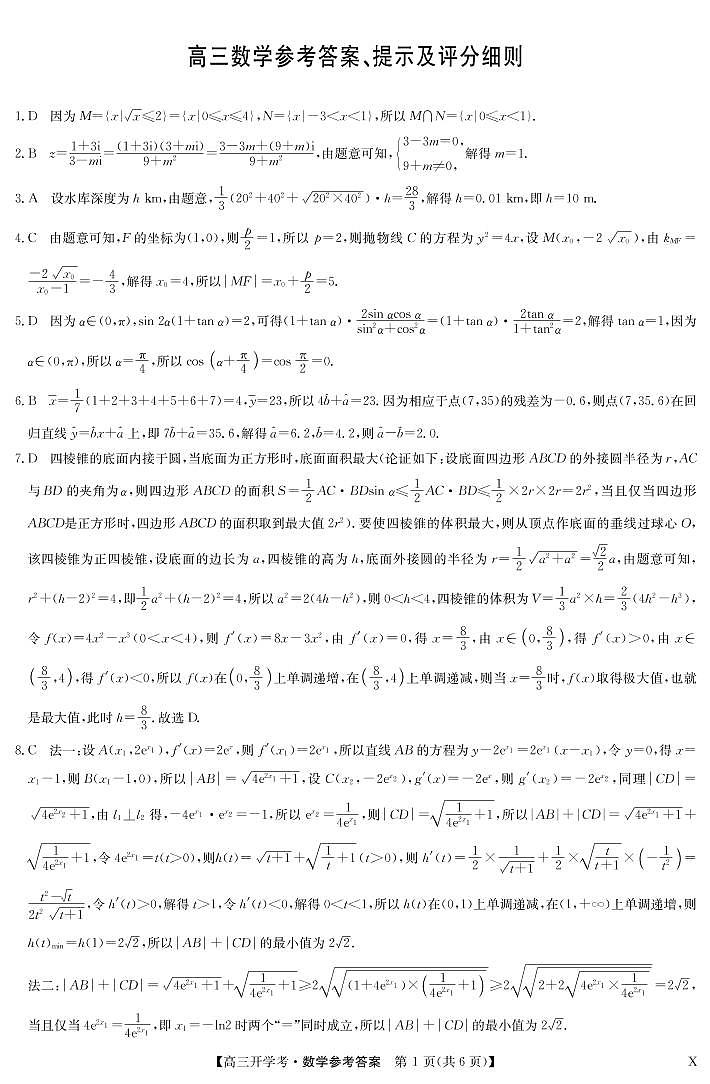 高三数学参考答案、提示及评分细则
1. D 因为 M={x|√x≤2}={x|0≤x≤4},N={x|-3<x<1},所以 M∩N={x|0≤x<1}.
2. B z=(1+3i)/(3-mi)=((1+3i)(3+mi))/(9+m²)=(3-3m+(9+m)i)/(9+m²),由题意可知,{3-3m=0, 9+m≠0, 解得 m=1.
3. A 设水库深度为 h km,由题意,1/3(20²+40²+√(20²×40²))·h=28/3,解得 h=0.01 km,即 h=10 m.
4. C 由题意可知,F 的坐标为(1,0),则 p/2=1,所以 p=2,则抛物线 C 的方程为 y²=4x,设 M(x₀,-2√x₀),由 k_MF=
(-2√x₀)/(x₀-1)=-4/3,解得 x₀=4,所以|MF|=x₀+p/2=5.
5. D 因为 α∈(0,π),sin 2α(1+tan α)=2,可得(1+tan α)·(2sin αcos α)/(sin²α+cos²α)=(1+tan α)·(2tan α)/(1+tan²α)=2,解得 tan α=1,因为
α∈(0,π),所以 α=π/4,所以 cos(α+π/4)=cos π/2=0.
6. B x̄=1/7(1+2+3+4+5+6+7)=4,ȳ=23,所以 4b̂+â=23.因为相应于点(7,35)的残差为-0.6,则点(7,35.6)在回
归直线 ŷ=b̂x+â 上,即 7b̂+â=35.6,解得 â=6.2,b̂=4.2,则 â-b̂=2.0.
7. D 四棱锥的底面内接于圆,当底面为正方形时,底面面积最大(论证如下:设底面四边形 ABCD 的外接圆半径为 r,AC
与 BD 的夹角为 α,则四边形 ABCD 的面积 S=1/2AC·BDsin α≤1/2AC·BD≤1/2×2r×2r=2r²,当且仅当四边形
ABCD是正方形时,四边形 ABCD 的面积取到最大值 2r²).要使四棱锥的体积最大,则从顶点作底面的垂线过球心 O,
该四棱锥为正四棱锥,设底面的边长为 a,四棱锥的高为 h,底面外接圆的半径为 r=1/2√(a²+a²)=(√2/2)a,由题意可知,
r²+(h-2)²=4,即1/2a²+(h-2)²=4,所以 a²=2(4h-h²),则 0<h<4,四棱锥的体积为 V=1/3a²×h=2/3(4h²-h³),
令 f(x)=4x²-x³(0<x<4),则 f′(x)=8x-3x²,由 f′(x)=0,得 x=8/3,由 x∈(0,8/3),得 f′(x)>0,由 x∈
(8/3,4),得 f′(x)<0,所以 f(x)在(0,8/3)上单调递增,在(8/3,4)上单调递减,则当 x=8/3时,f(x)取得极大值,也就
是最大值,此时 h=8/3.故选 D.
8. C 法一:设 A(x₁,2e^{x₁}),f′(x)=2e^x,则 f′(x₁)=2e^{x₁},所以直线 AB 的方程为 y-2e^{x₁}=2e^{x₁}(x-x₁),令 y=0,得 x=
x₁-1,则 B(x₁-1,0),所以|AB|=√(4e^{2x₁}+1),设 C(x₂,-2e^{x₂}),g′(x)=-2e^x,则 g′(x₂)=-2e^{x₂},同理|CD|=
√(4e^{2x₂}+1),由 l₁⊥l₂ 得,-4e^{x₁}·e^{x₂}=-1,所以 e^{x₂}=1/(4e^{x₁}),则|CD|=√(1/(4e^{2x₁})+1),所以|AB|+|CD|=√(4e^{2x₁}+1)+
√(1/(4e^{2x₁})+1),令 4e^{2x₁}=t(t>0),则h(t)=√(t+1)+√(1/t+1)(t>0),则 h′(t)=1/2×1/√(t+1)+1/2×√(t/(t+1))×(-1/t²)=
(t²-√t)/(2t²√(t+1)),令 h′(t)>0,解得 t>1,令 h′(t)<0,解得 0<t<1,所以 h(t)在(0,1)上单调递减,在(1,+∞)上单调递增,则
h(t)min=h(1)=2√2,所以|AB|+|CD|的最小值为 2√2.
法二:|AB|+|CD|=√(4e^{2x₁}+1)+√(1/(4e^{2x₁})+1)≥2√(√((1+4e^{2x₁})×(1/(4e^{2x₁})+1)))≥2√(√(2+2√(4e^{2x₁}×1/(4e^{2x₁}))))=2√2,
当且仅当 4e^{2x₁}=1/(4e^{2x₁}),即 x₁=-ln2 时两个“=”同时成立,所以|AB|+|CD|的最小值为 2√2.
【高三开学考·数学参考答案 第 1 页(共 6 页)】 X